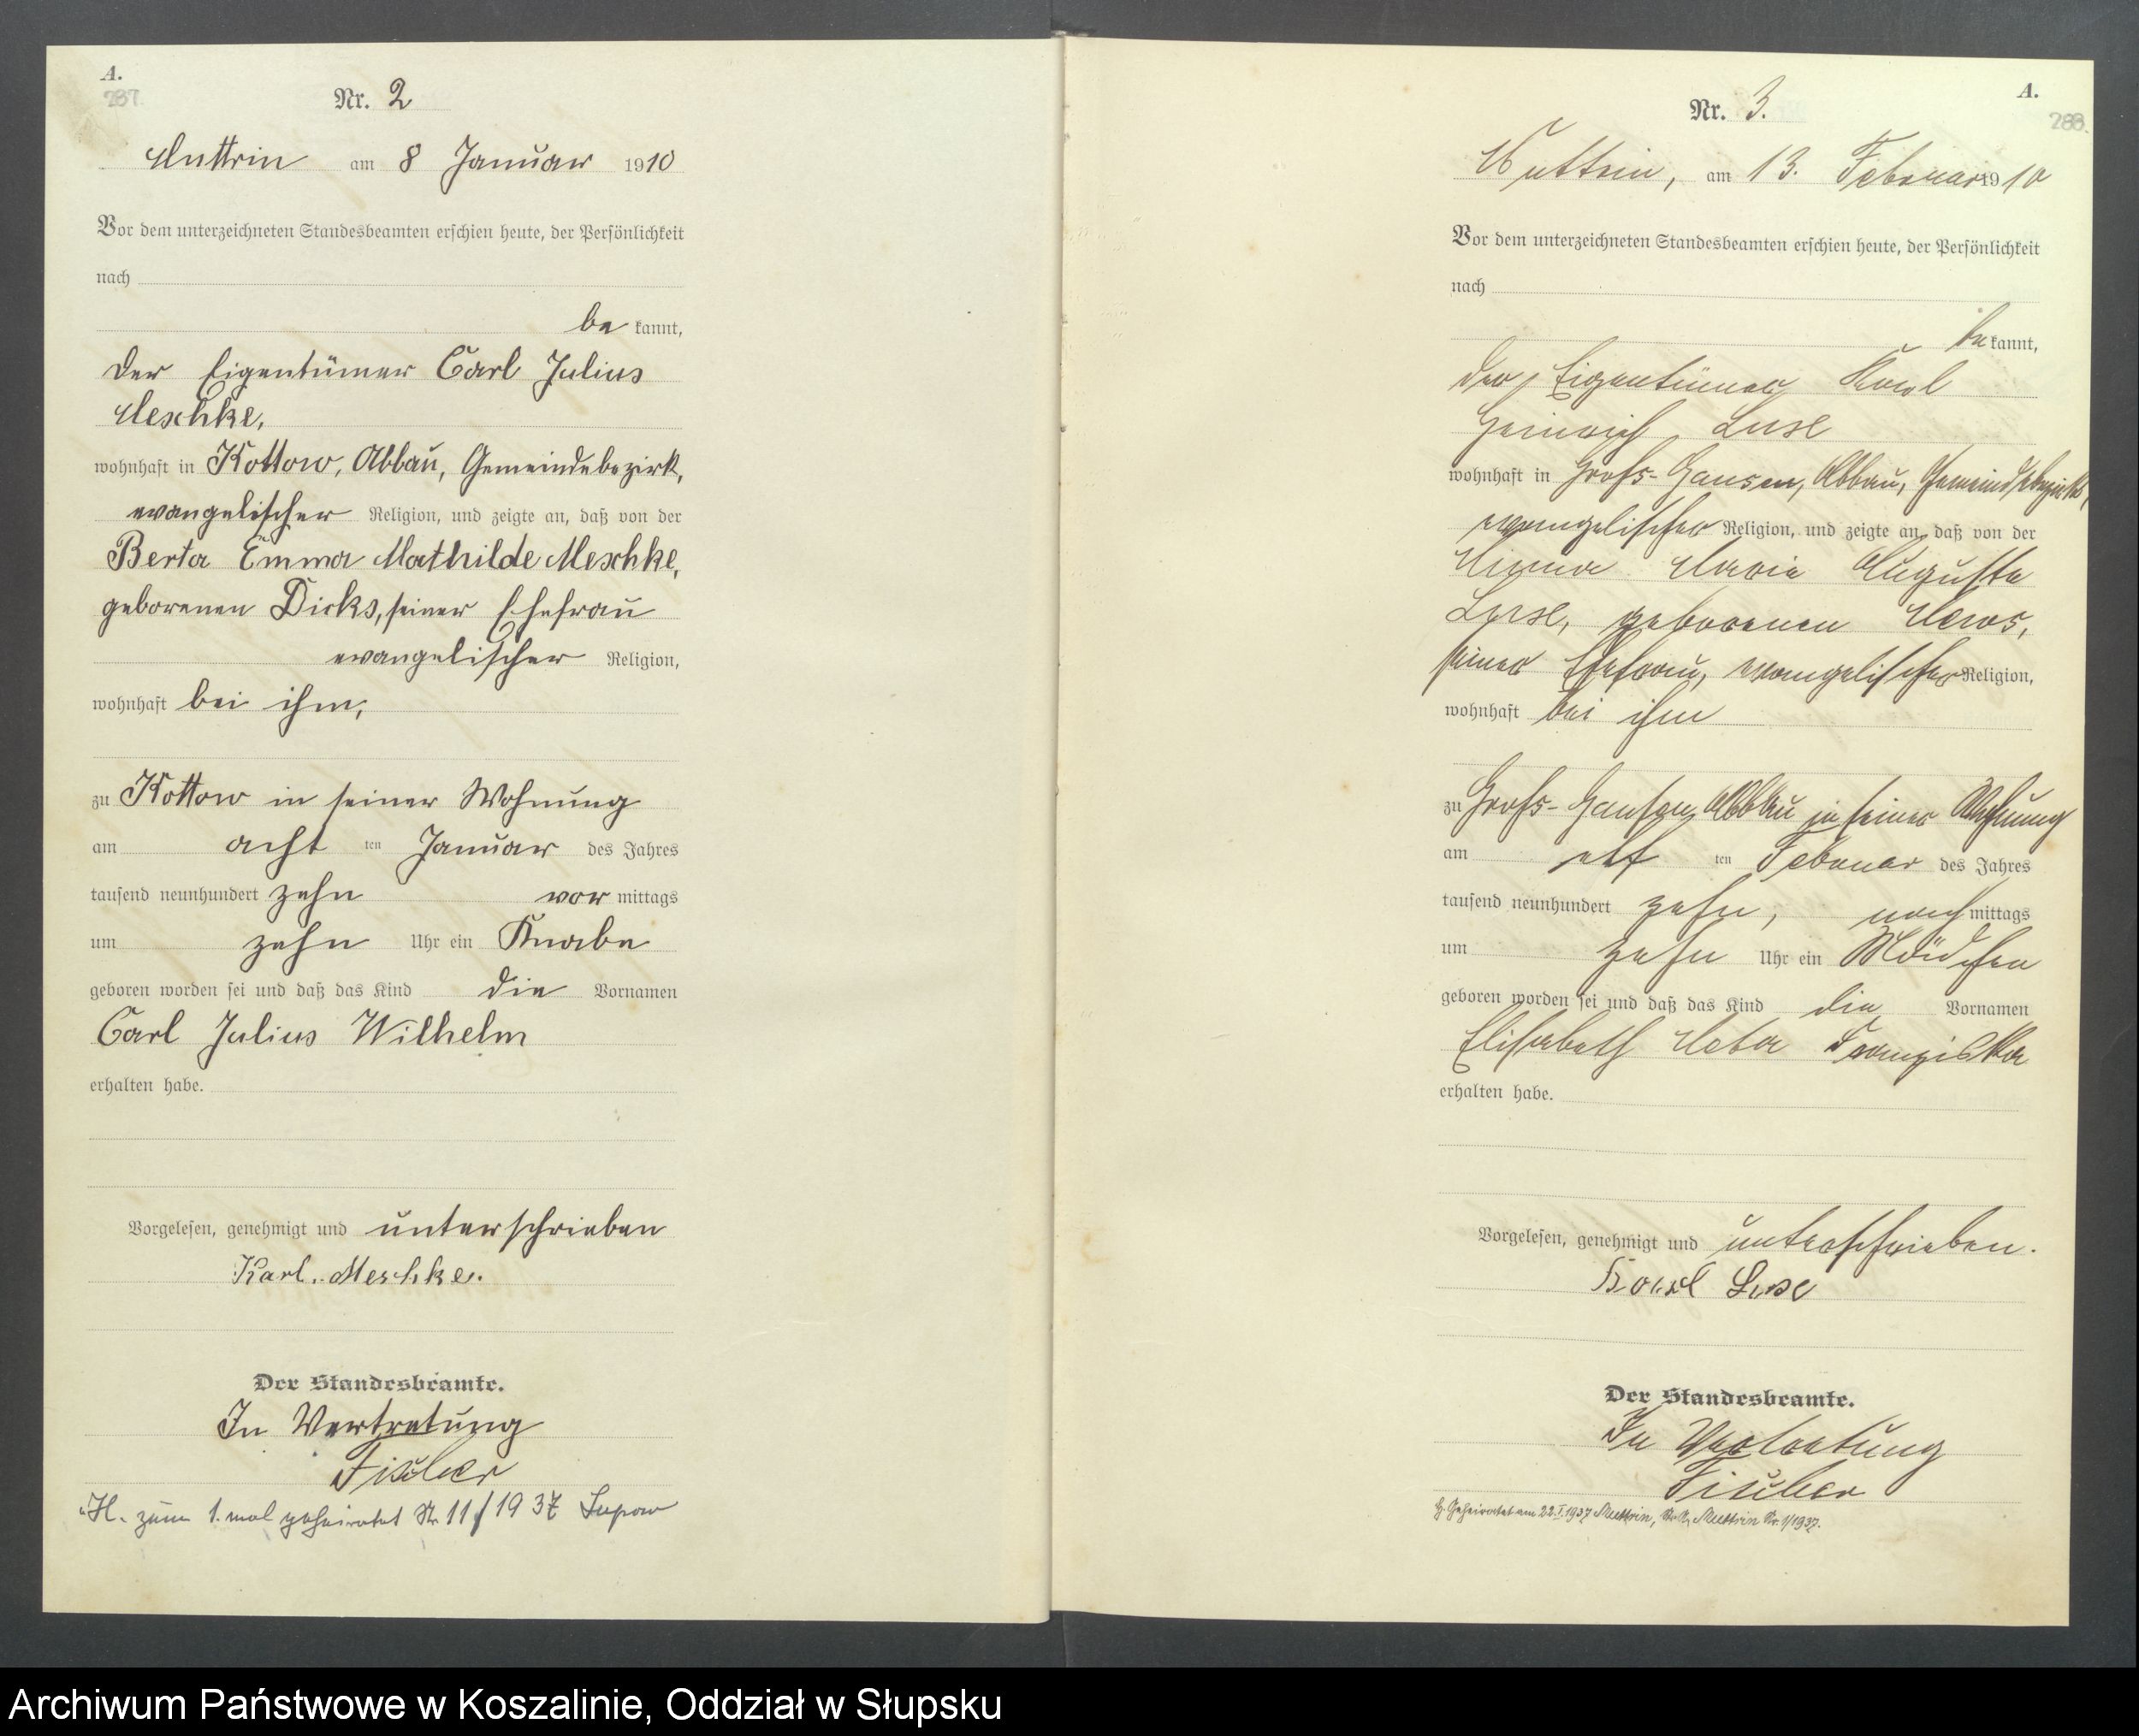 A.
287.
Nr. 2
Muttrin am 8 Januar 1910
Vor dem unterzeichneten Standesbeamten erschien heute, der Persönlichkeit
nach
be kannt,
der Eigentümer Carl Julius
Meschke,
wohnhaft in Kottow, Abbau, Gemeindebezirk,
evangelischer Religion, und zeigte an, daß von der
Berta Emma Mathilde Meschke,
geborenen Dirks, seiner Ehefrau
evangelischer Religion,
wohnhaft bei ihm,
zu Kottow in seiner Wohnung
am acht ten Januar des Jahres
tausend neunhundert zehn vor mittags
um zehn Uhr ein Knabe
geboren worden sei und daß das Kind die Vornamen
Carl Julius Wilhelm
erhalten habe.
Vorgelesen, genehmigt und unterschrieben
Karl Meschke.
Der Standesbeamte.
In Vertretung
Fischer
H. zum 1. mal geheiratet Nr 11/1937 Lupow
A.
288.
Nr. 3.
Muttrin, am 13. Februar 1910
Vor dem unterzeichneten Standesbeamten erschien heute, der Persönlichkeit
nach
be kannt,
der Eigentümer Karl
Heinrich
wohnhaft in Groß-Gansen, Abbau, Gemeindebezirk,
evangelischer Religion, und zeigte an, daß von der
Maria Auguste
geborenen
seiner Ehefrau, evangelischer Religion,
wohnhaft bei ihm
zu Groß-Gansen Abbau in seiner Wohnung
am elf ten Februar des Jahres
tausend neunhundert zehn, nach mittags
um zehn Uhr ein Mädchen
geboren worden sei und daß das Kind die Vornamen
Elisabeth Meta Franziska
erhalten habe.
Vorgelesen, genehmigt und unterschrieben.
Karl
Der Standesbeamte.
In Vertretung
Fischer
H. Geheiratet am 22.I.1937 Muttrin, St.A. Muttrin Nr. 1/1937.
Archiwum Państwowe w Koszalinie, Oddział w Słupsku